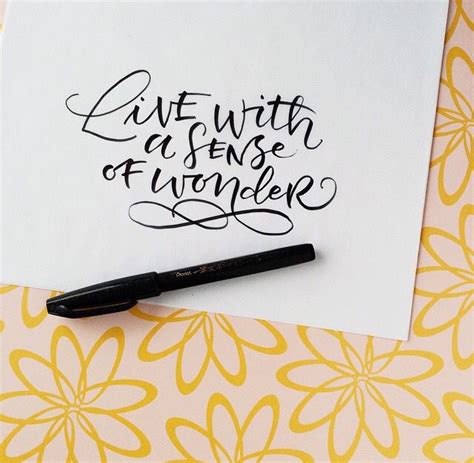 Live with
a sense
of wonder
Pentel